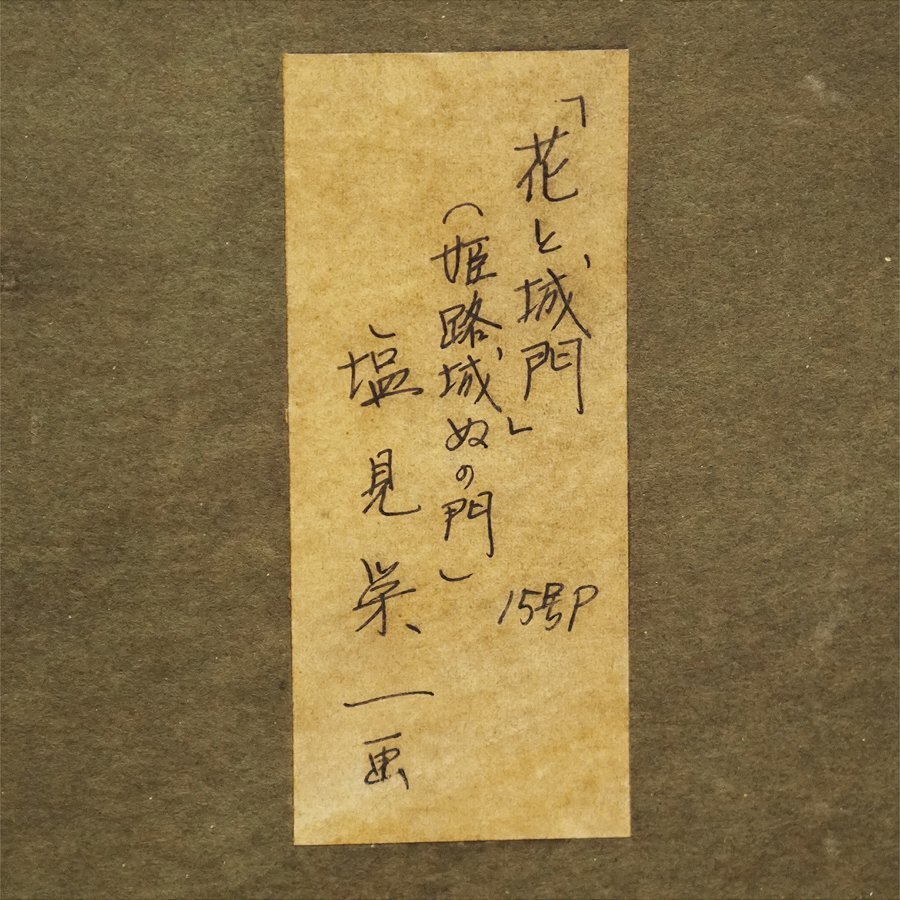 「花と城門」
15号P
（姫路城ぬの門）
塩見栄一画